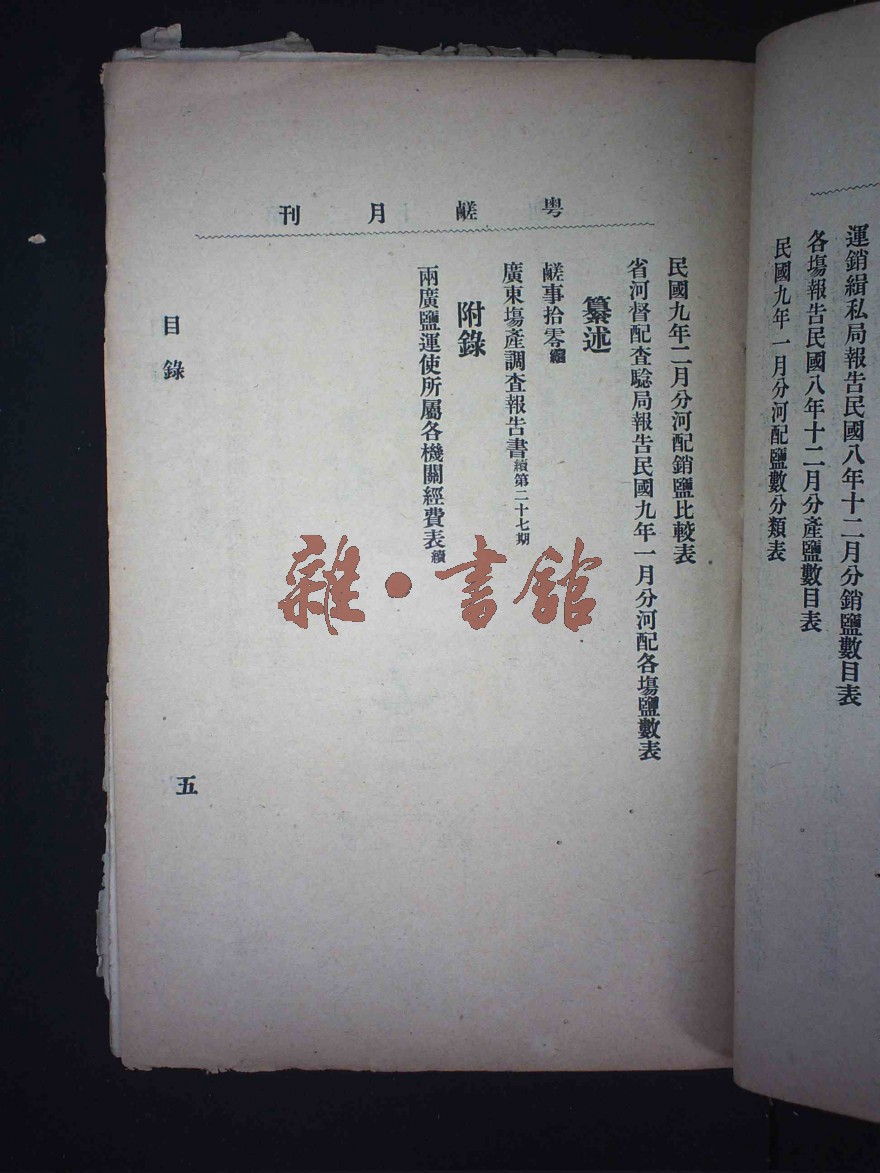 運銷緝私局報告民國八年十二月分銷鹽數目表
各塲報告民國八年十二月分產鹽數目表
民國九年一月分河配鹽數分類表
粵鹺月刊
民國九年二月分河配銷鹽比較表
省河督配查驗局報告民國九年一月分河配各塲鹽數表
纂述
鹺事拾零續
廣東塲產調查報告書續第二十七期
附錄
兩廣鹽運使所屬各機關經費表續
目錄
五
雜·書館